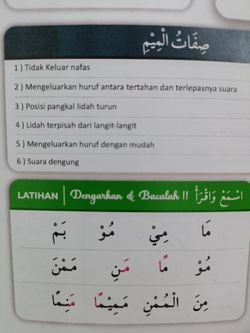 صِفَاتُ الْمِيْمِ
1 ) Tidak Keluar nafas
2 ) Mengeluarkan huruf antara tertahan dan terlepasnya suara
3 ) Posisi pangkal lidah turun
4 ) Lidah terpisah dari langit-langit
5 ) Mengeluarkan huruf dengan mudah
6 ) Suara dengung
LATIHAN Dengarkan & Bacalah !! اسْمَعْ وَاقْرَأْ
مَا مِيْ مُوْ بَمْ
مُوْ مَّا مَنِ مَمْنَ
مِنَ الْمُمْنِ مَمِيْمًا مَنِمًا